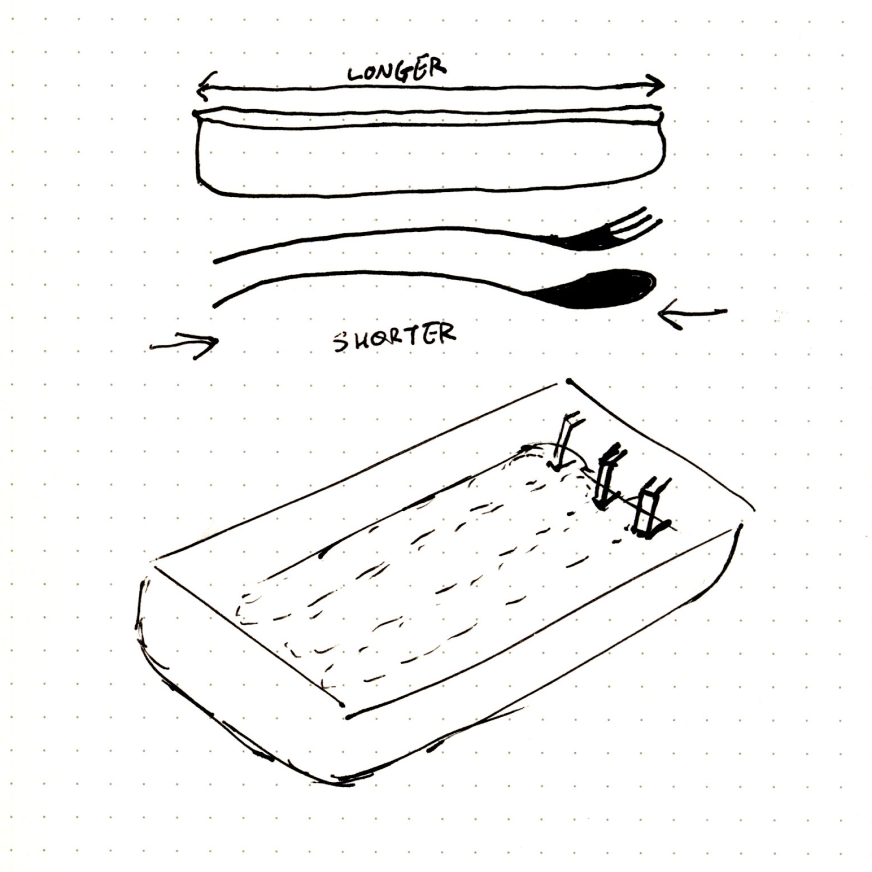 LONGER
SHORTER